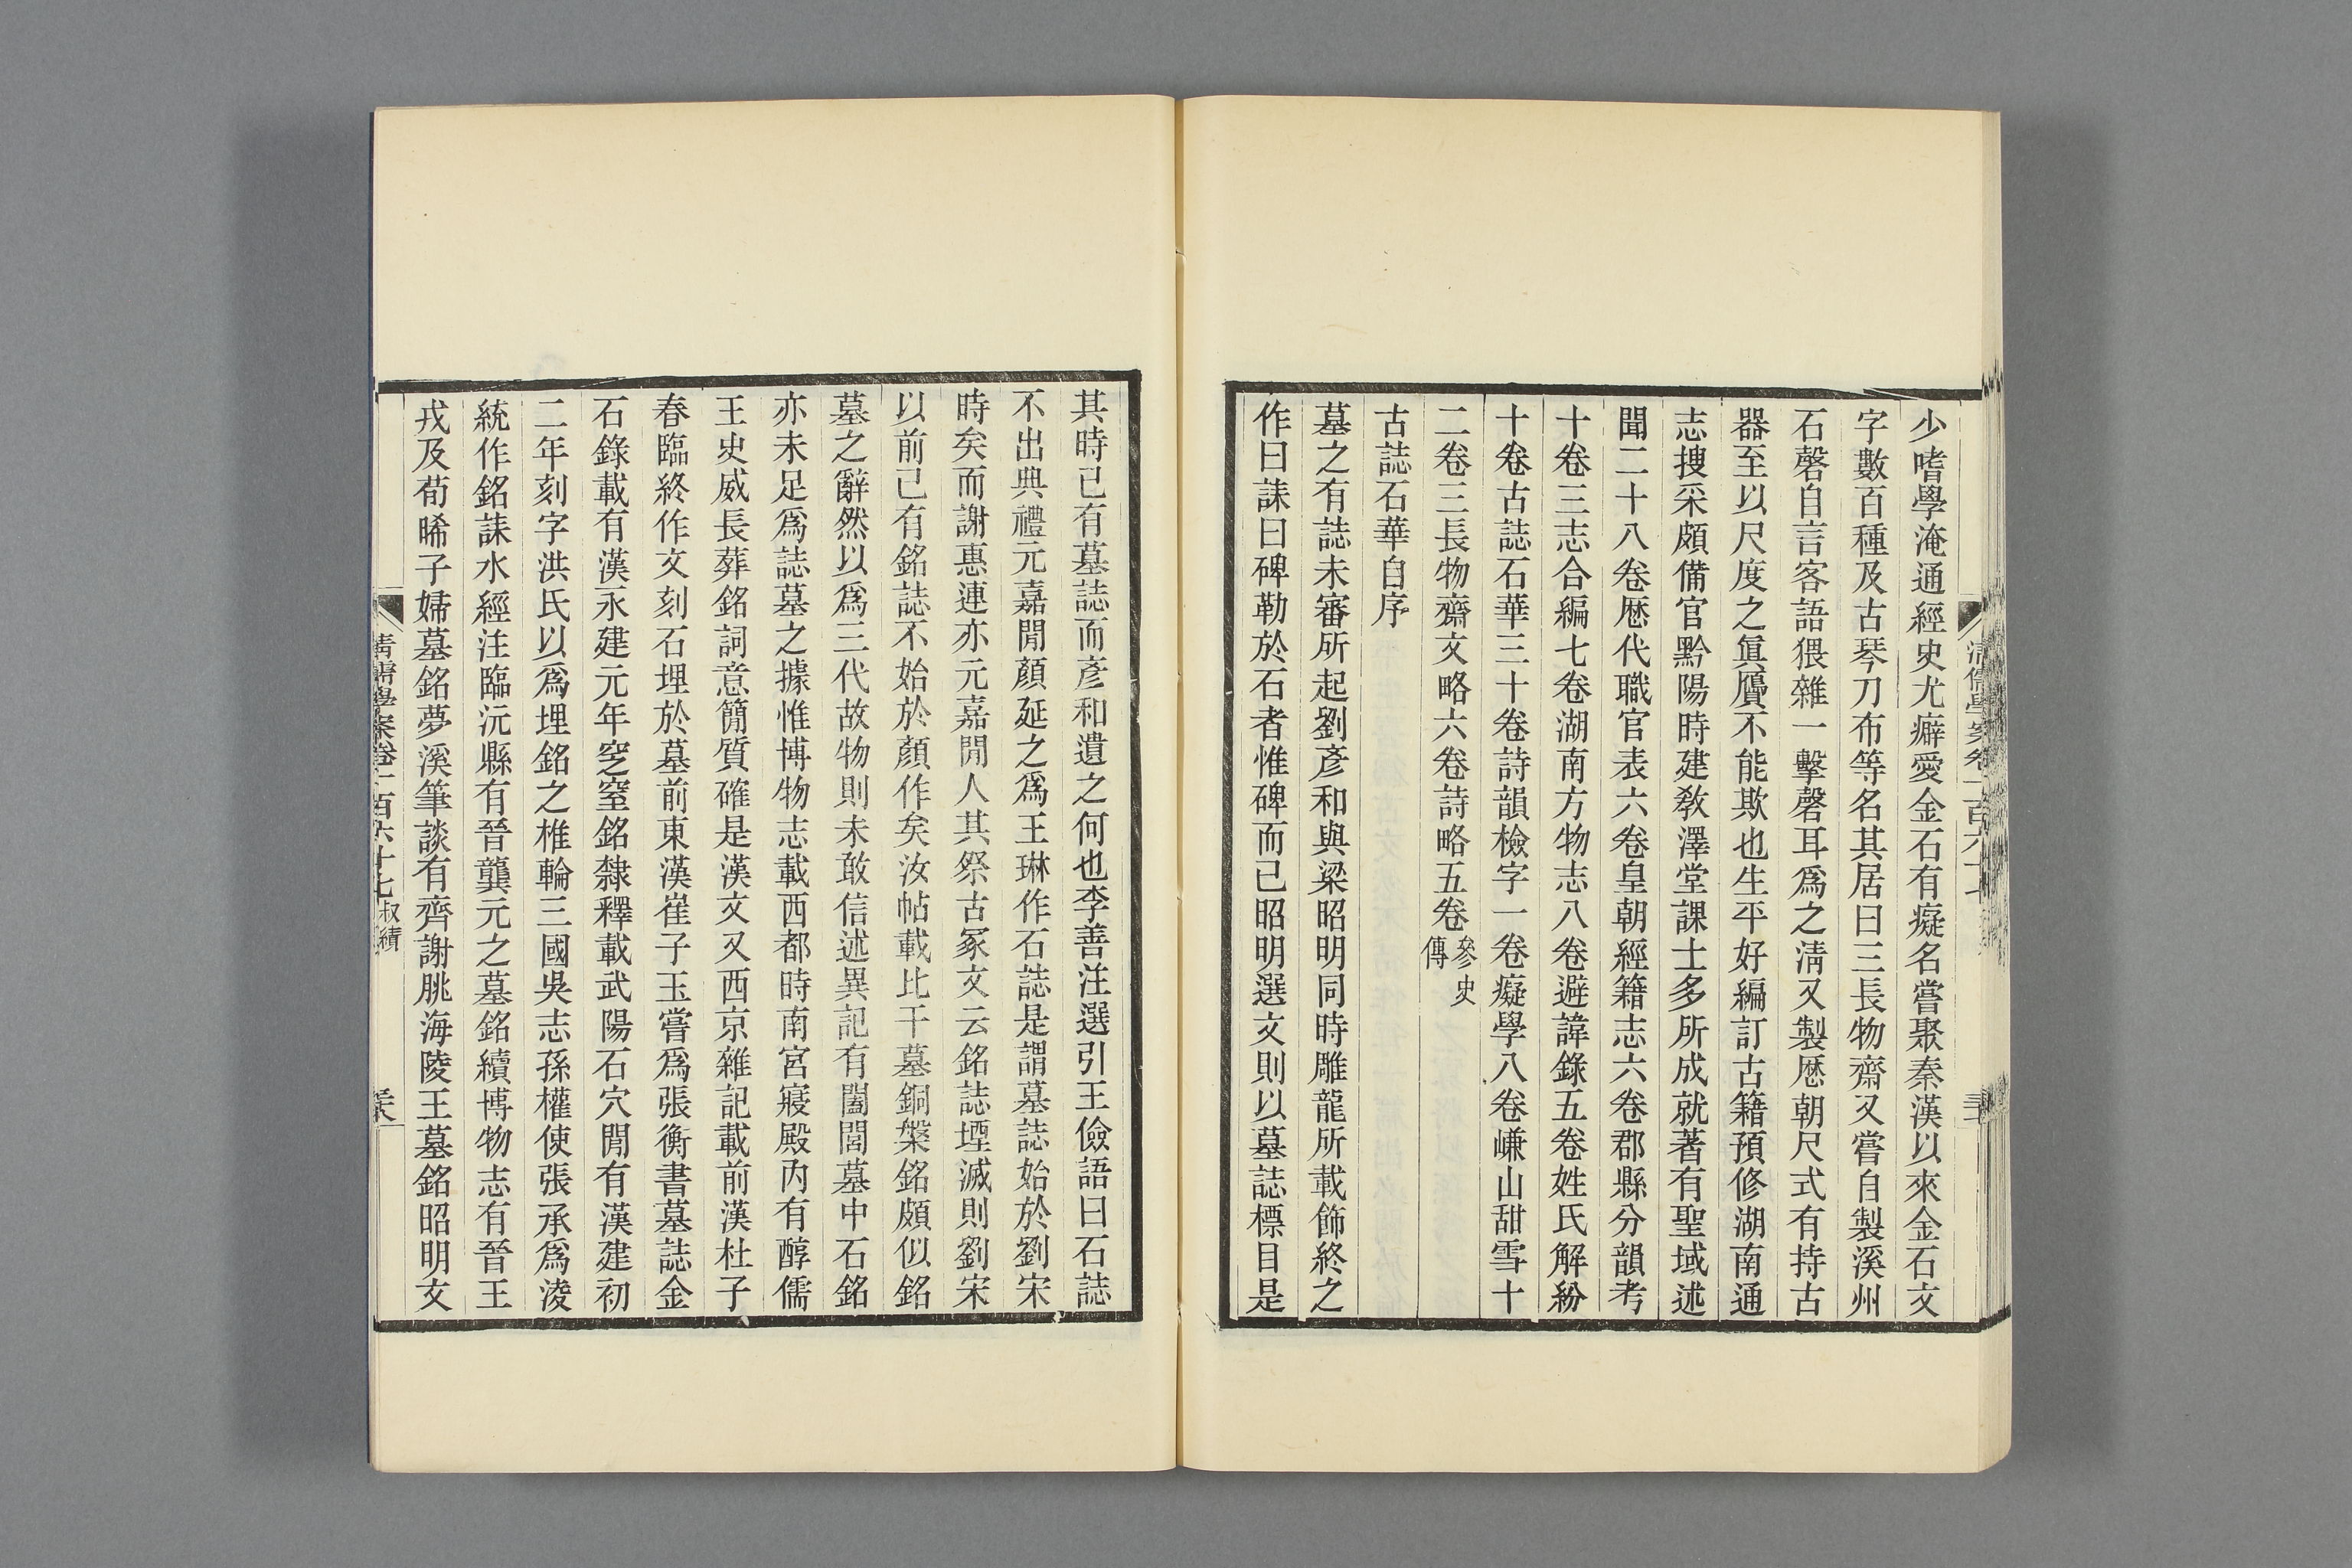 少嗜學淹通經史尤癖愛金石有癡名嘗聚秦漢以來金石文
字數百種及古琴刀布等名其居曰三長物齋又嘗自製溪州
石磬自言客語猥雜一擊磬耳爲之淸又製歷朝尺式有持古
器至以尺度之眞贋不能欺也生平好編訂古籍預修湖南通
志搜采頗備官黔陽時建敎澤堂課士多所成就著有聖域述
聞二十八卷歷代職官表六卷皇朝經籍志六卷郡縣分韻考
十卷三志合編七卷湖南方物志八卷避諱錄五卷姓氏解紛
十卷古誌石華三十卷詩韻檢字一卷癡學八卷嵰山甜雪十
二卷三長物齋文略六卷詩略五卷參史傳
古誌石華自序
墓之有誌未審所起劉彥和與梁昭明同時雕龍所載飾終之
作曰誄曰碑勒於石者惟碑而已昭明選文則以墓誌標目是
其時已有墓誌而彥和遺之何也李善注選引王儉語曰石誌
不出典禮元嘉閒顏延之爲王琳作石誌是謂墓誌始於劉宋
時矣而謝惠連亦元嘉閒人其祭古冢文云銘誌堙滅則劉宋
以前已有銘誌不始於顏作矣汝帖載比干墓銅槃銘頗似銘
墓之辭然以爲三代故物則未敢信述異記有闔閭墓中石銘
亦未足爲誌墓之據惟博物志載西都時南宮寢殿內有醇儒
王史威長葬銘詞意簡質確是漢文又西京雜記載前漢杜子
春臨終作文刻石埋於墓前東漢崔子玉嘗爲張衡書墓誌金
石錄載有漢永建元年窆窒銘隸釋載武陽石穴閒有漢建初
二年刻字洪氏以爲埋銘之椎輪三國吳志孫權使張承爲淩
統作銘誄水經注臨沅縣有晉龔元之墓銘續博物志有晉王
戎及荀晞子婦墓銘夢溪筆談有齊謝朓海陵王墓銘昭明文
淸儒學案卷一百六十七叔績